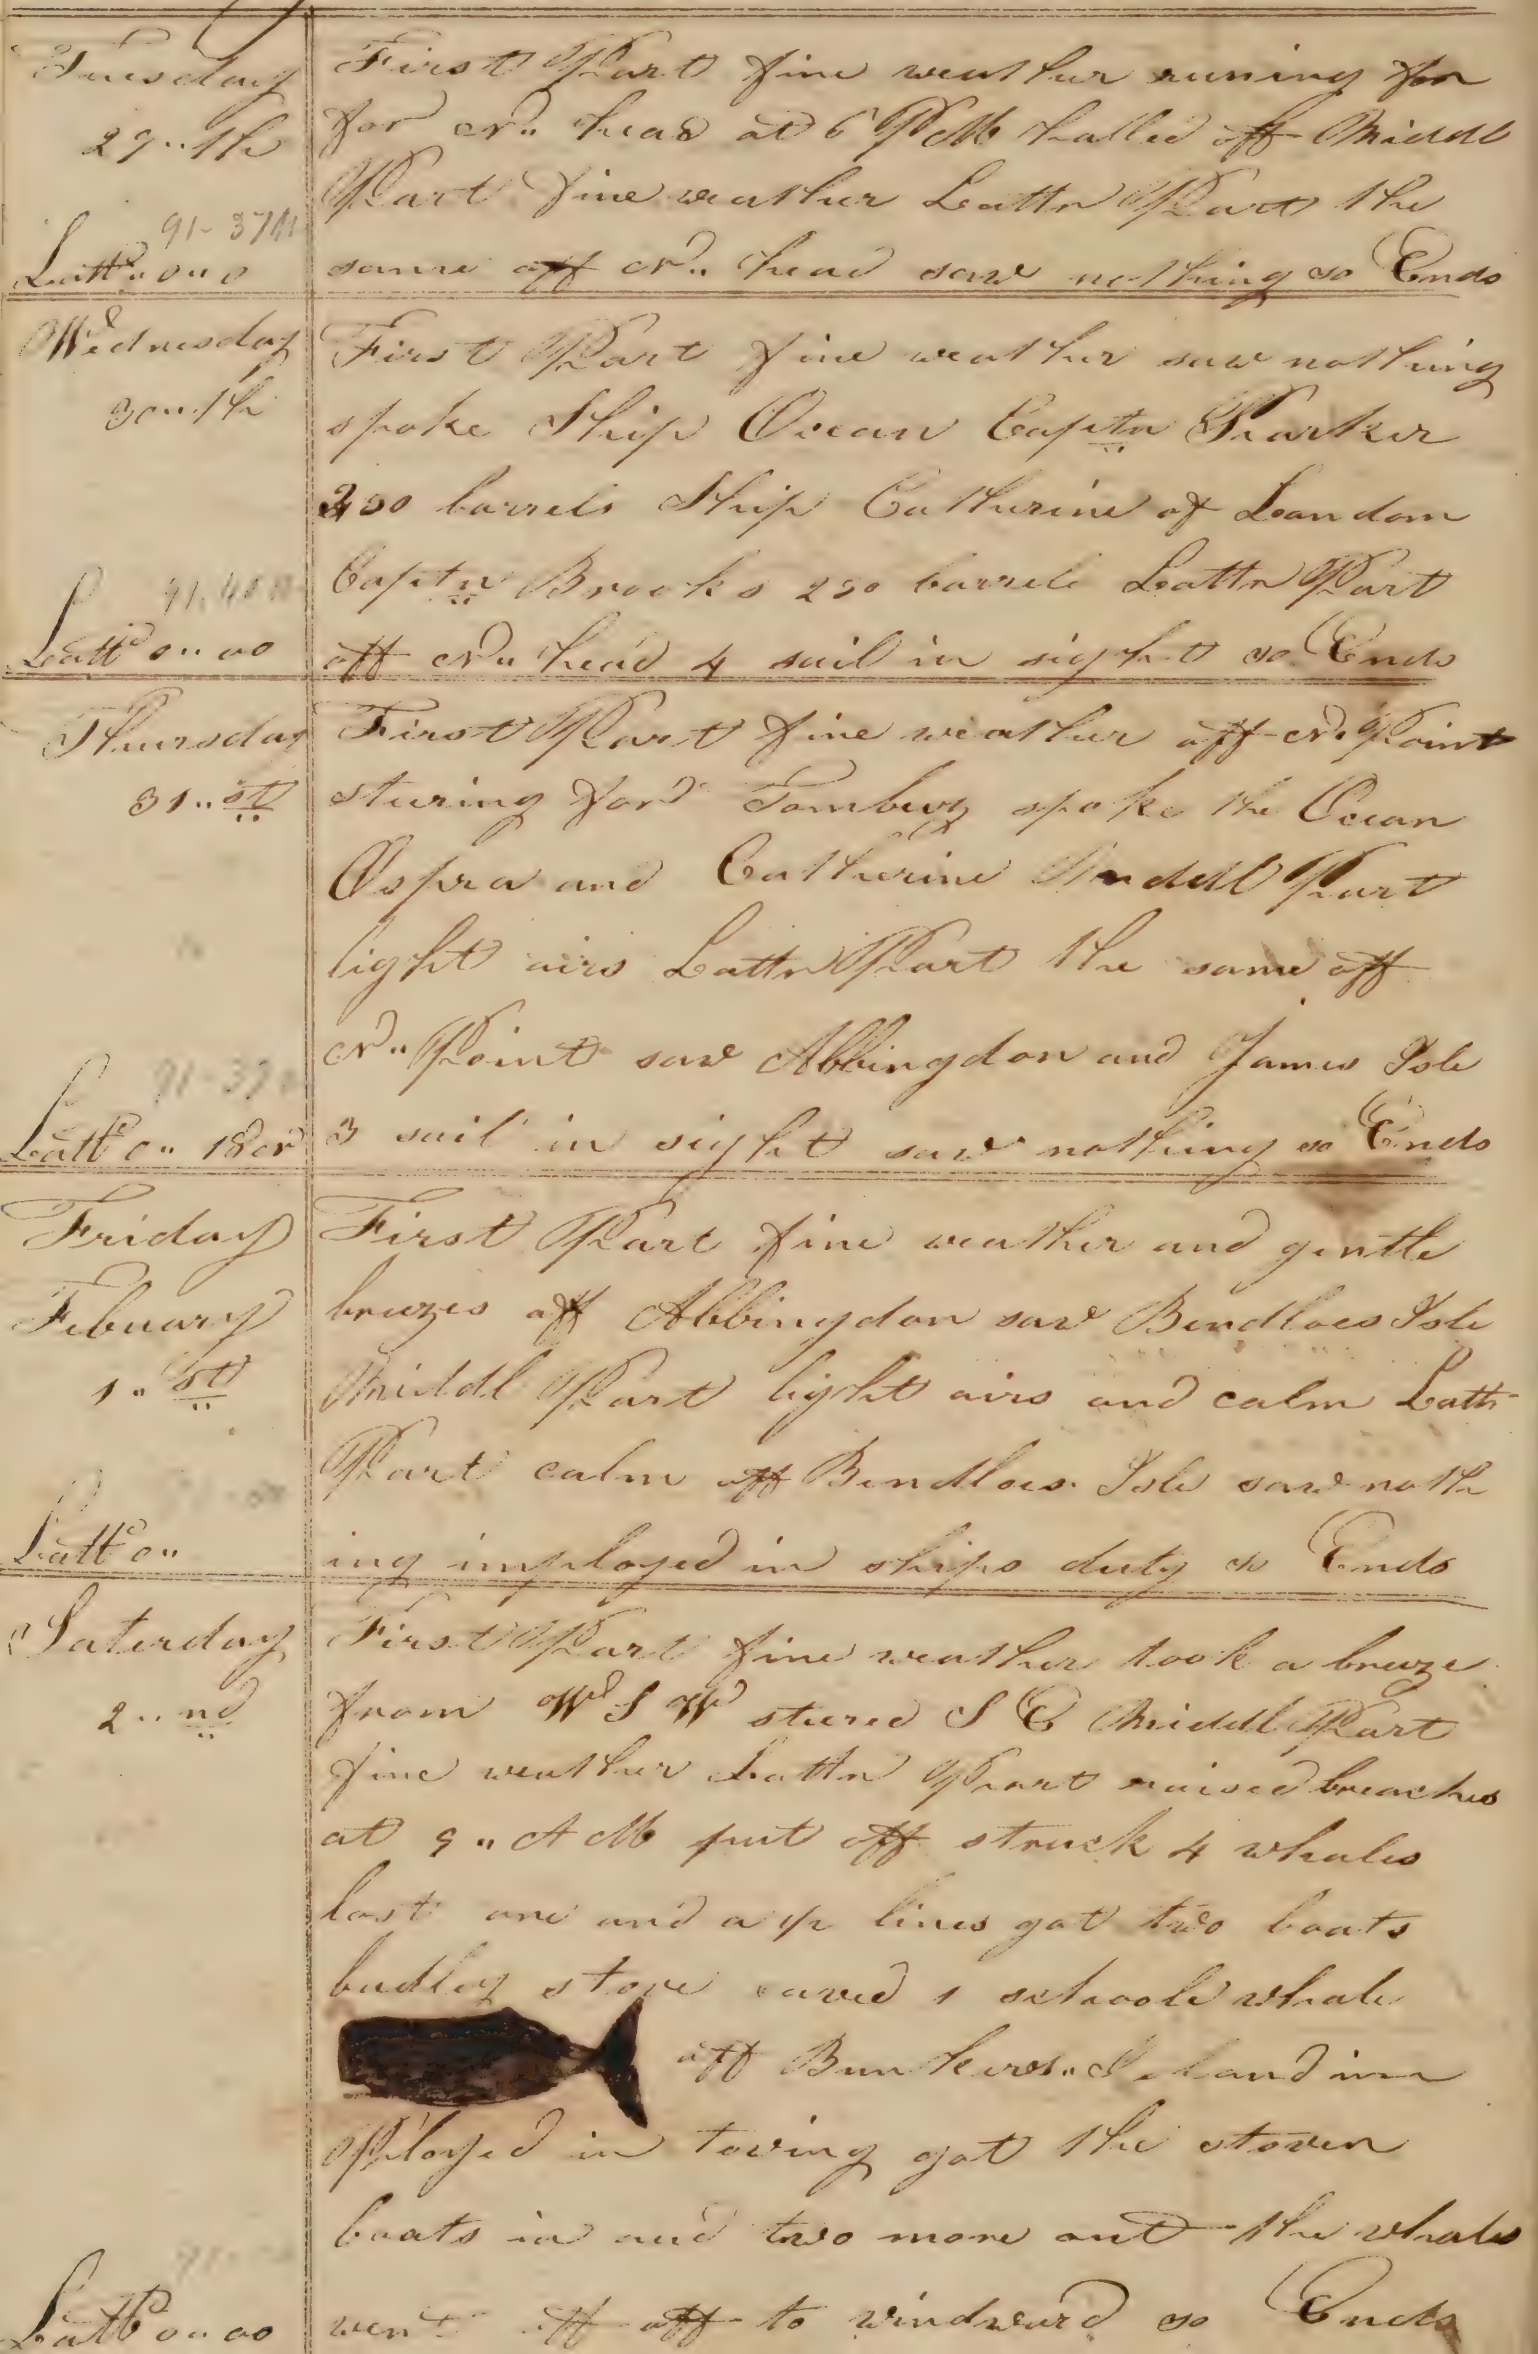 Tuesday
29..th
91-37W
Latt.. 0..0
First Part fine weather runing for
for N.. head at 6 PM halled off Middl
Part fine weather Lattr Part the
same off N.. head saw nothing so Ends
Wednesday
30..th
91.40W
Latt 0..00
First Part fine weather saw nothing
spoke Ship Ocean Captn Parker
barrels Ship Catherine of Landom
Captn Brooks 250 barrels Lattr Part
off N.. head 4 sail in sight so Ends
Thursday
31..st
91-37
Latt 0.. 18 N
First Part fine weather off N. Point
sturing for Tombuy spoke the Ocean
Ospra and Catherine Middl Part
light airs Lattr Part the same off
N.. Point saw Abbingdon and James Isle
3 sail in sight saw nothing so Ends
Friday
Febuary
1..st
Latt 0..
First Part fine weather and gentle
breezes off Abbingdon saw Bendloes Isle
Middl Part light airs and calm Lattr
Part calm off Bendloes Isle saw noth
ing imployed in ships duty so Ends
Saterday
2..nd
91-
Latt 0..00
First Part fine weather took a breeze
from W S W stured S E Middl Part
fine weather Lattr Part raised breaches
at 9.. AM put off struck 4 whales
lost one and a lines got two boats
badley stove saved 1 schoole whale
off Bunkers.. Island im
Ployed in towing got the stoven
boats in and two more out the whales
went off off to windward so Ends